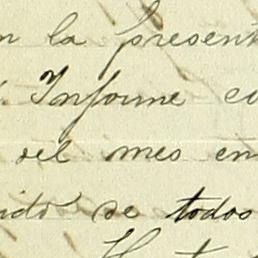 n la present
Informe co
del mes en
ido de todos